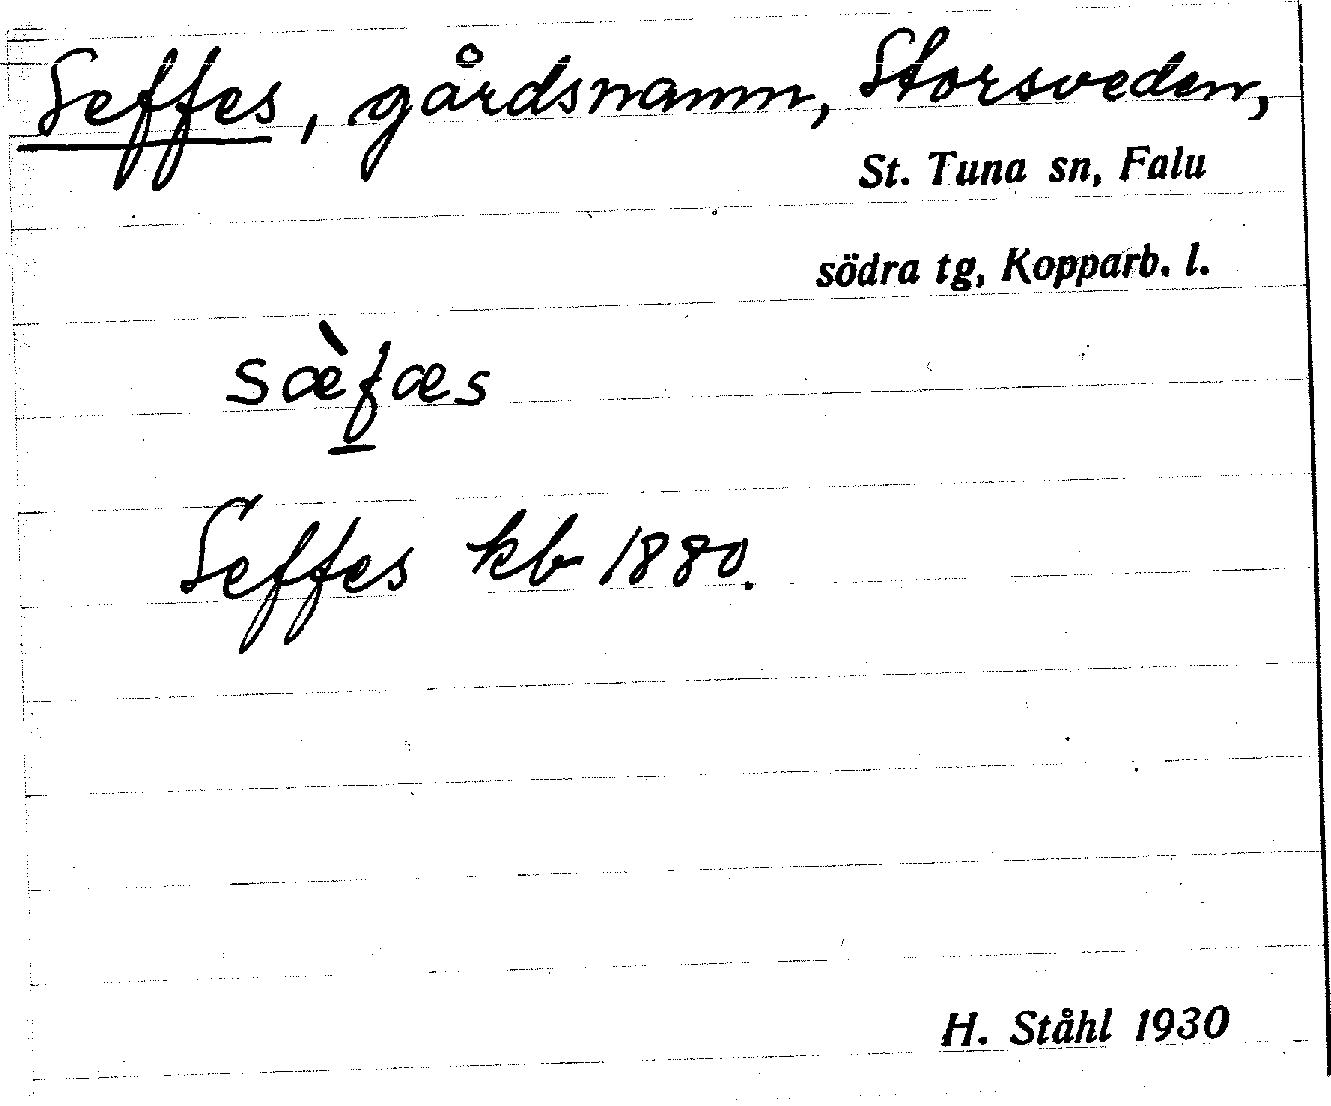 Seffes, gårdsnamn, Storsveden,
St. Tuna sn, Falu
södra tg, Kopparb. l.
sæ̀f̲æs
Seffes kb 1880.
H. Ståhl 1930